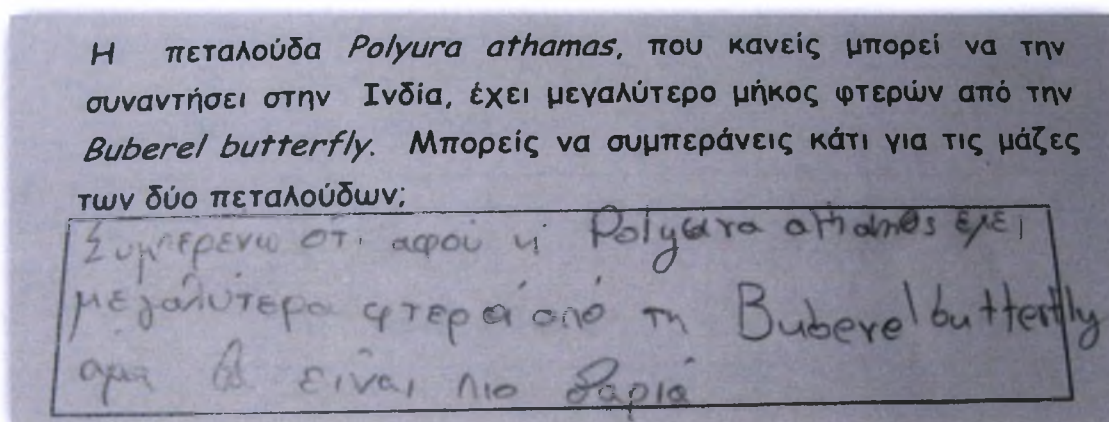 Η πεταλούδα Polyura athamas, που κανείς μπορεί να την
συναντήσει στην Ινδία, έχει μεγαλύτερο μήκος φτερών από την
Buberel butterfly. Μπορείς να συμπεράνεις κάτι για τις μάζες
των δύο πεταλούδων;
Συμπερενω οτι αφού η Polyura athamas εχει
μεγαλυτερα φτερά από τη Buberel butterfly
αρα θα είναι πιο βαριά